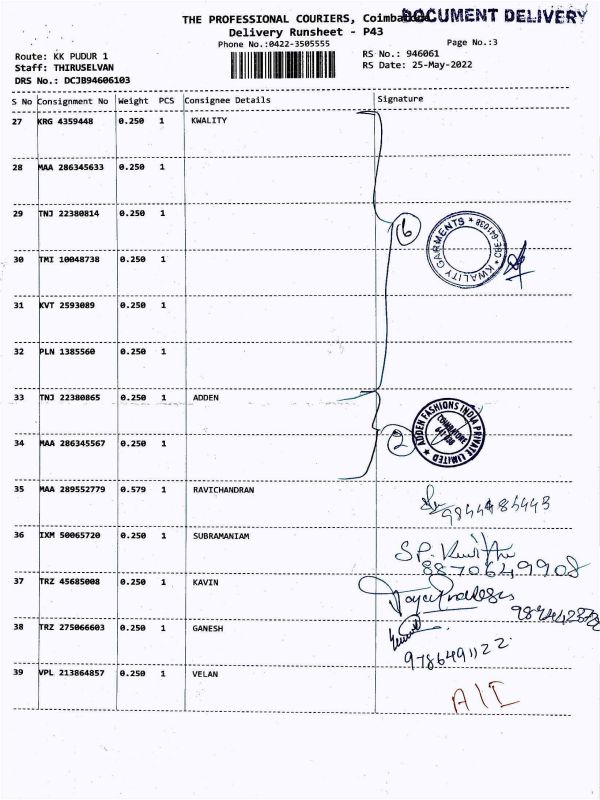 THE PROFESSIONAL COURIERS, Coimbatore
DOCUMENT DELIVERY
Delivery Runsheet - P43
Phone No.:0422-3505555
Page No.:3
Route: KK PUDUR 1
RS No.: 946061
Staff: THIRUSELVAN
RS Date: 25-May-2022
DRS No.: DCJB94606103
S No Consignment No Weight PCS Consignee Details Signature
27 KRG 4359448 0.250 1 KWALITY
28 MAA 286345633 0.250 1
29 TNJ 22380814 0.250 1
6
KWALITY GARMENTS * CBE-641038 *
30 TMI 10048738 0.250 1
31 KVT 2593089 0.250 1
32 PLN 1385560 0.250 1
33 TNJ 22380865 0.250 1 ADDEN
2
ADDEN FASHIONS INDIA PRIVATE LIMITED
COIMBATORE
641 038
34 MAA 286345567 0.250 1
35 MAA 289552779 0.579 1 RAVICHANDRAN
36 IXM 50065720 0.250 1 SUBRAMANIAM
8870649908
37 TRZ 45685008 0.250 1 KAVIN
38 TRZ 275066603 0.250 1 GANESH
9786491122
39 VPL 213864857 0.250 1 VELAN
A/I